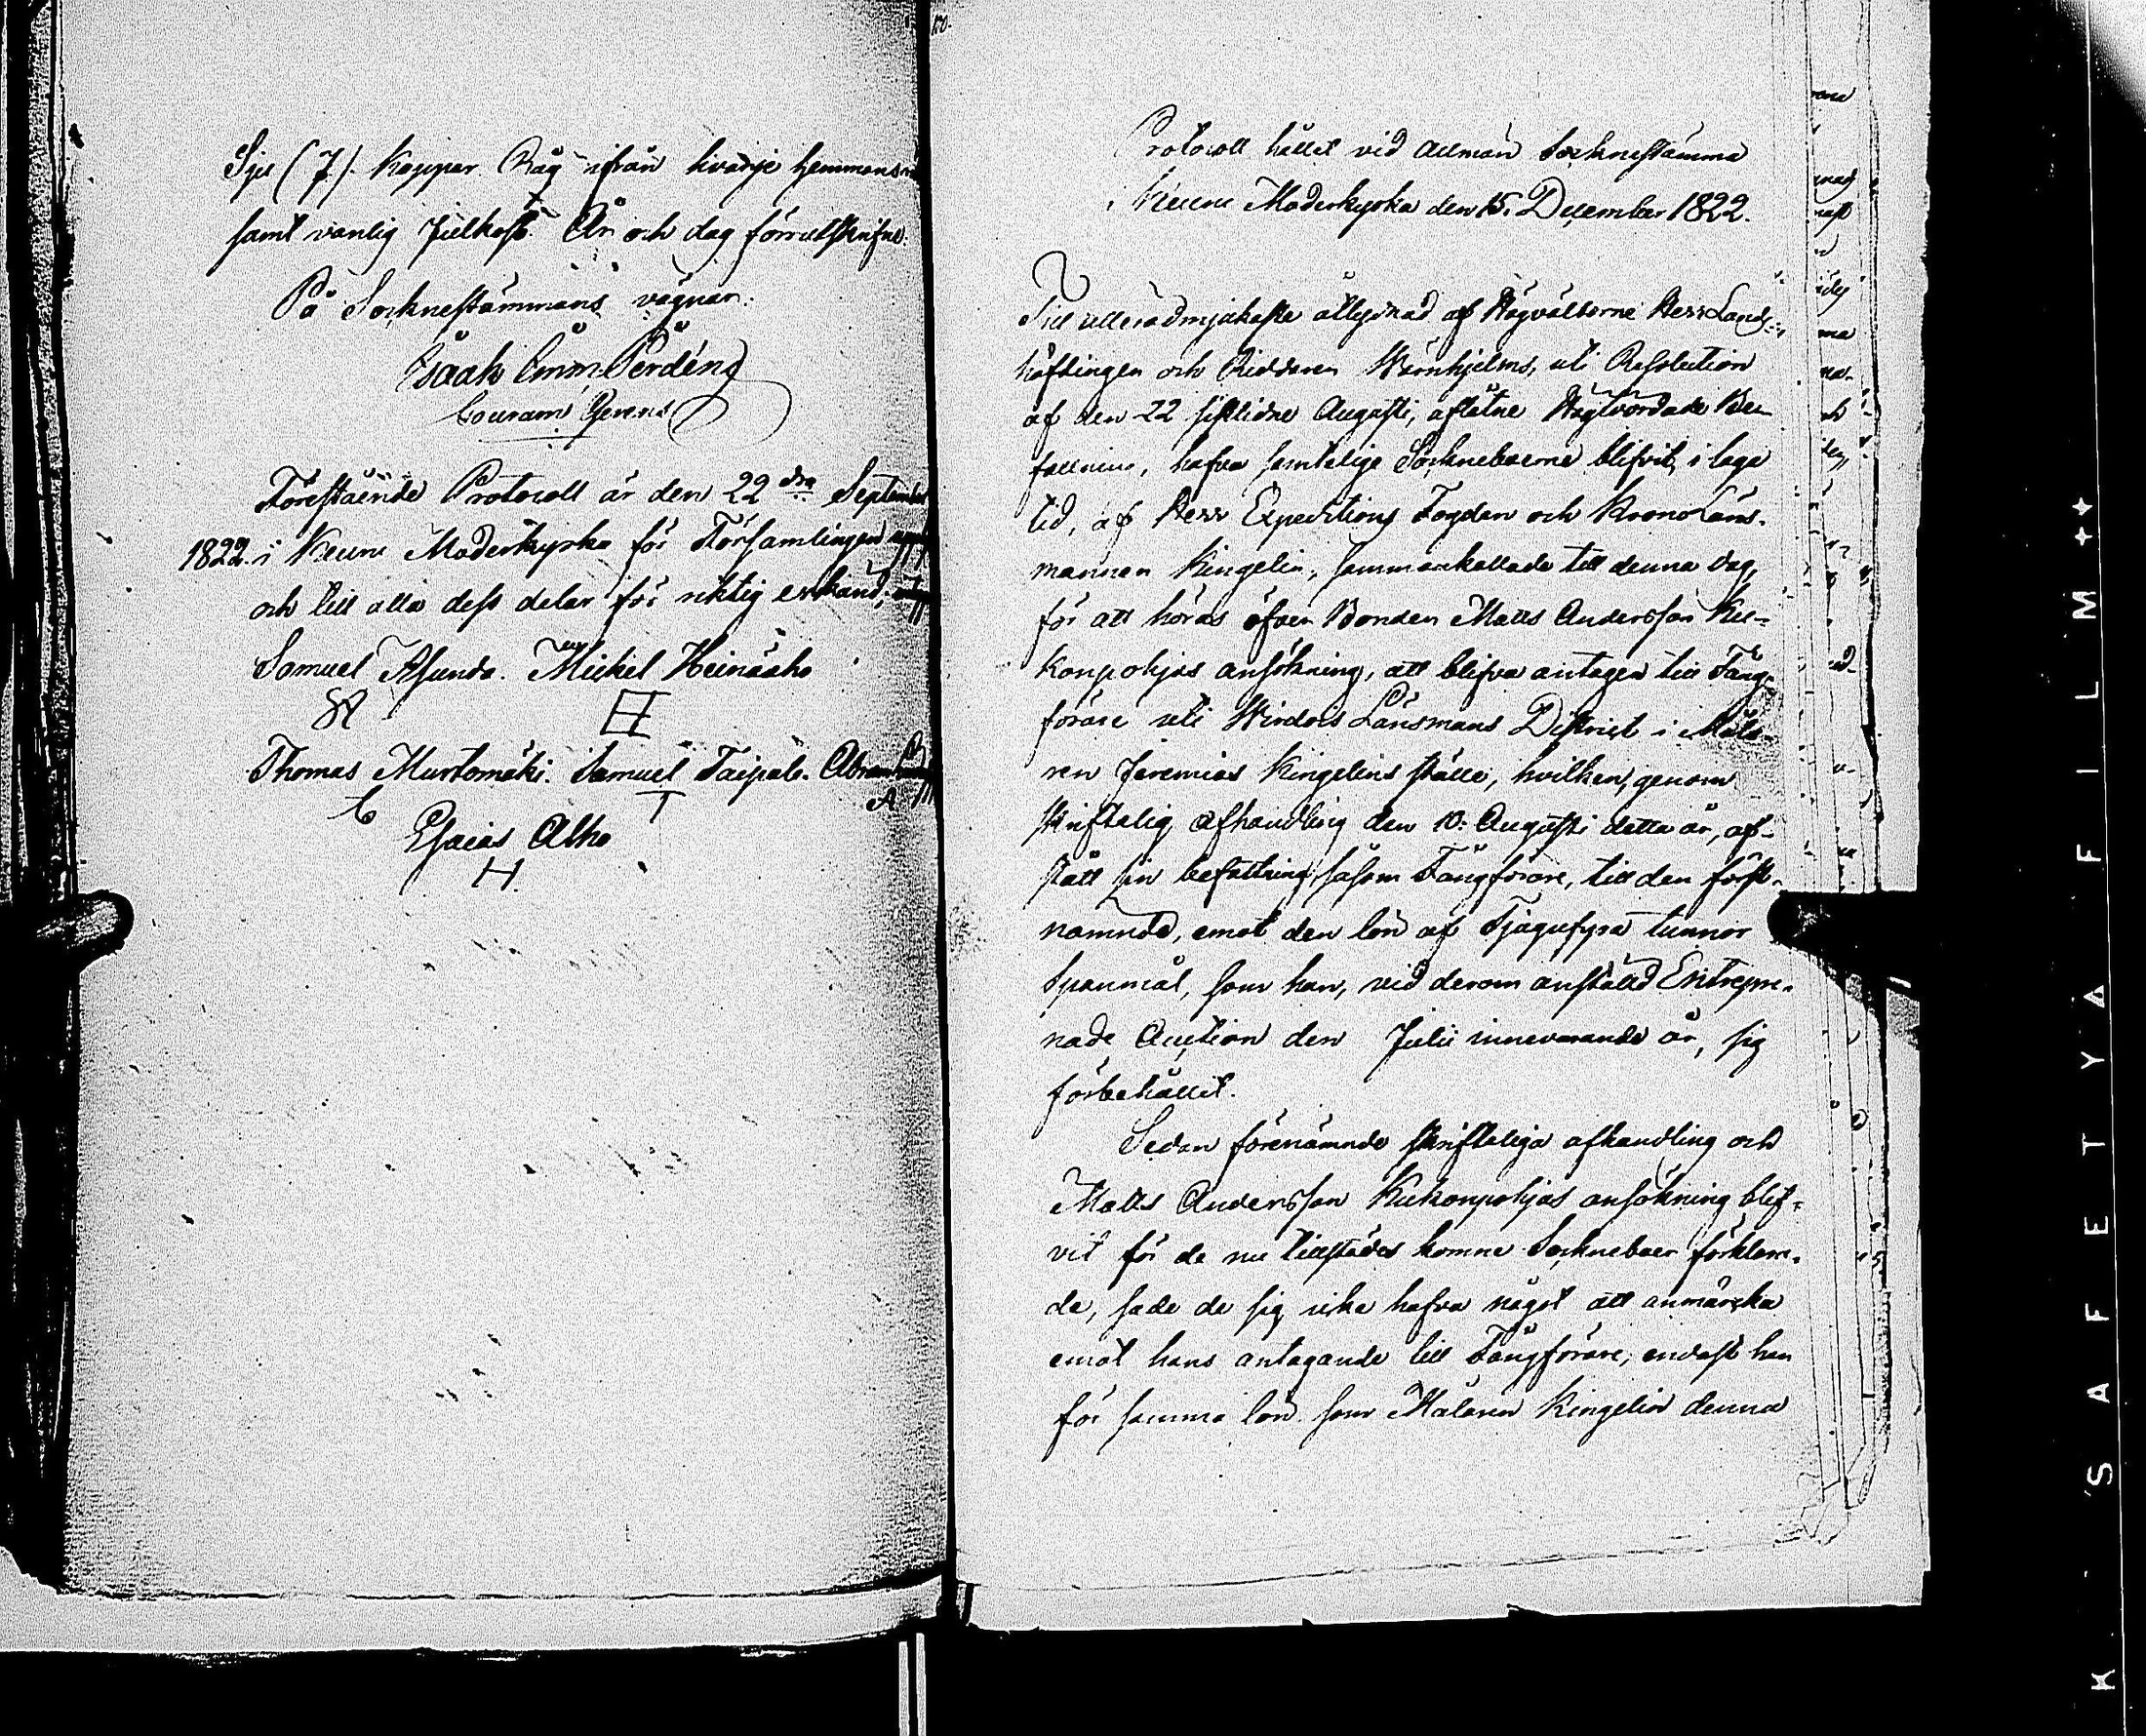 Sju (7). Kappar Råg ifrån hvarje hemmans
samt vanlig Julkost. År och dag förrutskrifne.
På Socknestämmans vägnar:
Isaak Emm. Perdén
Förestående Protocoll är den 22dra September
1822 i Keuru Moderkyrka för Församlingen
och till alla dess delar för riktig erkänd,
Samuel Asunda. Mickel Heinäaho
SA
Thomas Murtomäki. Samuel Taipale. Abraham
T A
Esaias Alho
H.
Protocoll hållet vid allmän Socknestämma
i Keuru Moderkyrka den 15. December 1822.
Till alleródmjukaste åtlydnad af Högvälborne Herr Lands-
höfdingen och Riddaren Wärnhjelms, uti Resolution
af den 22 sistlidne Augusti, aflåtne Högtvördade Be-
fallning, hafva samtelige Sockneboerne blifvit, i laga
tid, af Herr Expeditions Fogden och Krono Läns-
mannen Kingelin, sammankallade till denna dag,
för att höras öfver Bonden Matts Andersson Kiu-
konpohjas ansökning, att blifva antagen till Fång-
förare uti Wirdois Länsmans District i Måla-
ren Jeremias Kingelins ställe, hvilken, genom
skriftelig afhandling den 10. Augusti detta år, af-
stått sin befattning såsom Fångförare, till den först-
nämnde, emot den lön af Tjugufyra tunnor
Spanmål, som han, vid derom anställd Entrepre-
nade Auction den Julii innevarande år, sig
förbehållit.
Sedan förenämnde skrifteliga afhandling och
Matts Andersson Kiukonpohjas ansökning blif-
vit för de nu tillstädes komne Sockneboer förklara-
de, sade de sig icke hafva något att anmärka
emot hans antagande till Fångförare, endast han
för samma lön som Målaren Kingelin denna
K 'SAFETY A FILM ++